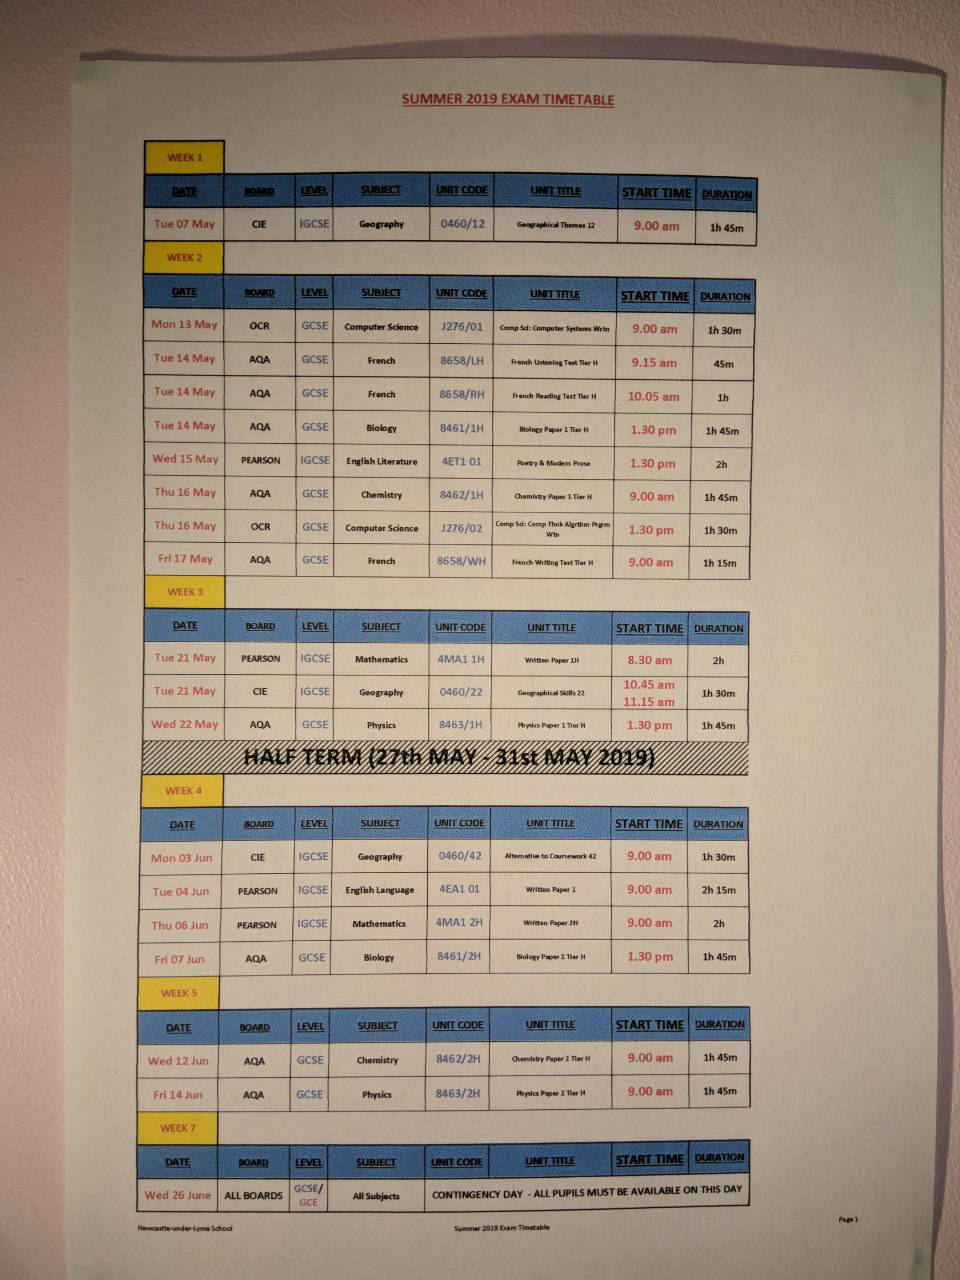 SUMMER 2019 EXAM TIMETABLE
WEEK 1
DATE BOARD LEVEL SUBJECT UNIT CODE UNIT TITLE START TIME DURATION
Tue 07 May CIE IGCSE Geography 0460/12 Geographical Themes 12 9.00 am 1h 45m
WEEK 2
DATE BOARD LEVEL SUBJECT UNIT CODE UNIT TITLE START TIME DURATION
Mon 13 May OCR GCSE Computer Science J276/01 Comp Sci: Computer Systems Wrtn 9.00 am 1h 30m
Tue 14 May AQA GCSE French 8658/LH French Listening Test Tier H 9.15 am 45m
Tue 14 May AQA GCSE French 8658/RH French Reading Test Tier H 10.05 am 1h
Tue 14 May AQA GCSE Biology 8461/1H Biology Paper 1 Tier H 1.30 pm 1h 45m
Wed 15 May PEARSON IGCSE English Literature 4ET1 01 Poetry & Modern Prose 1.30 pm 2h
Thu 16 May AQA GCSE Chemistry 8462/1H Chemistry Paper 1 Tier H 9.00 am 1h 45m
Thu 16 May OCR GCSE Computer Science J276/02 Comp Sci: Comp Thnk Algrthm Prgrm Wtn 1.30 pm 1h 30m
Fri 17 May AQA GCSE French 8658/WH French Writing Test Tier H 9.00 am 1h 15m
WEEK 3
DATE BOARD LEVEL SUBJECT UNIT CODE UNIT TITLE START TIME DURATION
Tue 21 May PEARSON IGCSE Mathematics 4MA1 1H Written Paper 1H 8.30 am 2h
Tue 21 May CIE IGCSE Geography 0460/22 Geographical Skills 22 10.45 am 11.15 am 1h 30m
Wed 22 May AQA GCSE Physics 8463/1H Physics Paper 1 Tier H 1.30 pm 1h 45m
HALF TERM (27th MAY - 31st MAY 2019)
WEEK 4
DATE BOARD LEVEL SUBJECT UNIT CODE UNIT TITLE START TIME DURATION
Mon 03 Jun CIE IGCSE Geography 0460/42 Alternative to Coursework 42 9.00 am 1h 30m
Tue 04 Jun PEARSON IGCSE English Language 4EA1 01 Written Paper 1 9.00 am 2h 15m
Thu 06 Jun PEARSON IGCSE Mathematics 4MA1 2H Written Paper 2H 9.00 am 2h
Fri 07 Jun AQA GCSE Biology 8461/2H Biology Paper 2 Tier H 1.30 pm 1h 45m
WEEK 5
DATE BOARD LEVEL SUBJECT UNIT CODE UNIT TITLE START TIME DURATION
Wed 12 Jun AQA GCSE Chemistry 8462/2H Chemistry Paper 2 Tier H 9.00 am 1h 45m
Fri 14 Jun AQA GCSE Physics 8463/2H Physics Paper 2 Tier H 9.00 am 1h 45m
WEEK 7
DATE BOARD LEVEL SUBJECT UNIT CODE UNIT TITLE START TIME DURATION
Wed 26 June ALL BOARDS GCSE/ GCE All Subjects CONTINGENCY DAY - ALL PUPILS MUST BE AVAILABLE ON THIS DAY
Newcastle-under-Lyme School Summer 2019 Exam Timetable Page 1